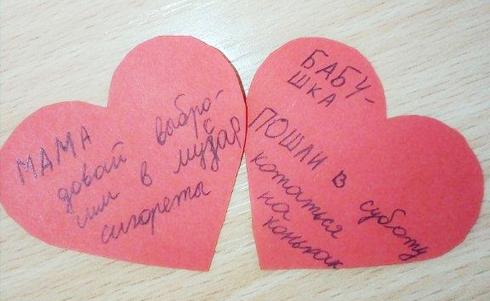 МАМА
довай выбро-
сим в мусоя
сигореты
БАБУ-
ШКА
ПОШЛИ в суботу
кататься
на
коньках